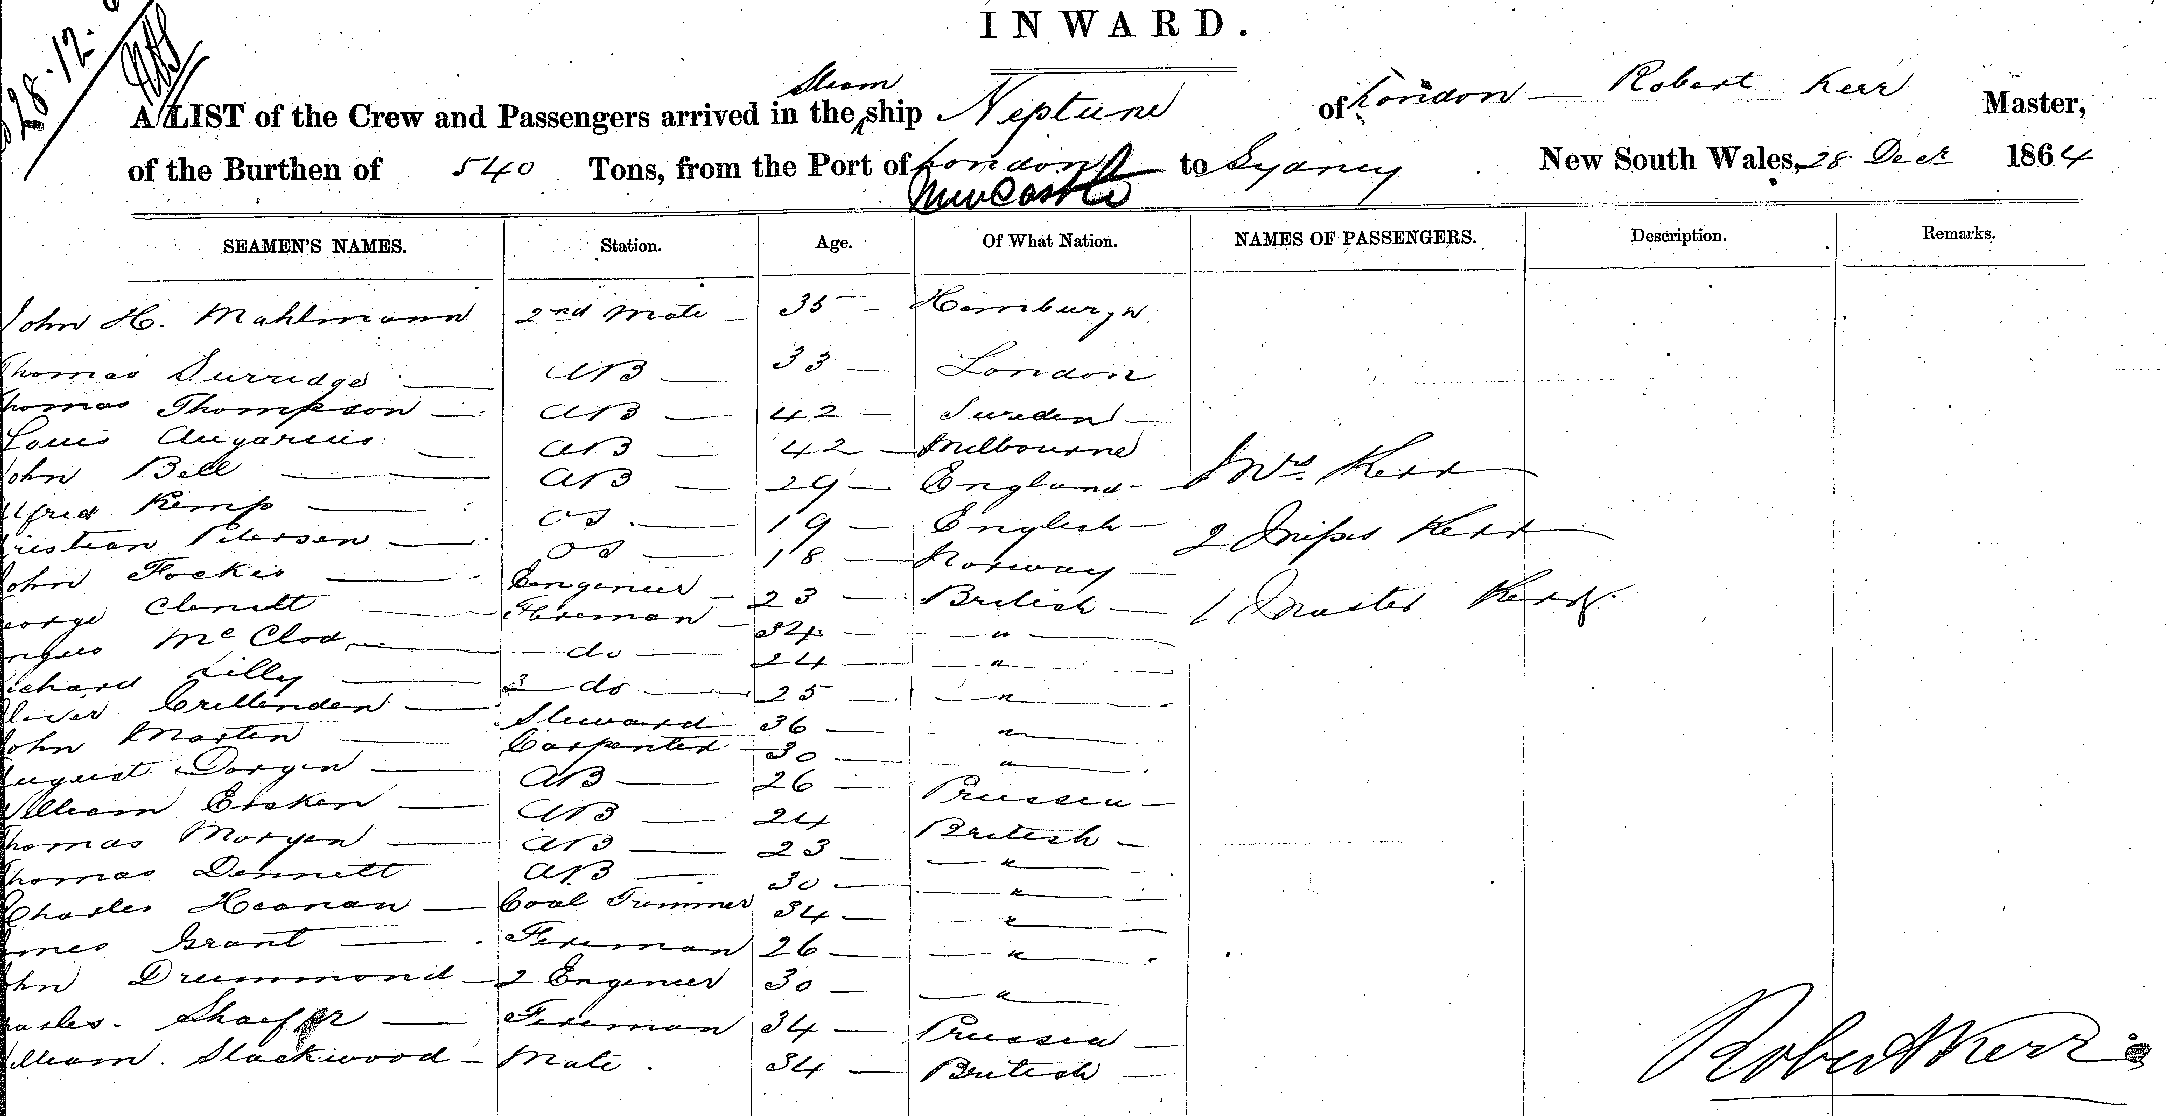 28.12.
INWARD.
A LIST of the Crew and Passengers arrived in the Steam ship Neptune of London — Robert Kerr Master,
of the Burthen of 540 Tons, from the Port of London Newcastle to Sydney New South Wales, 28 Decr 1864
SEAMEN'S NAMES. Station. Age. Of What Nation. NAMES OF PASSENGERS. Description. Remarks.
John H. Mahlmann 2nd Mate — 35 — Hamburgh
Thomas Surridge — AB — 33 — London
homas Thompson — AB — 42 — Sweden —
Louis — AB — 42 — Melbourne
John Bell — AB — 29 — England — Mrs Kerr
lfred Kemp — OS — 19 — English —
ristian Petersen — OS — 18 — Norway — 2 Misses Kerr
John — Engineer — 23 — British — 1 Master Kerr
eorge — Fireman — 34 — " —
ngus McClod — do — 24 — " —
ichard Lilly — do — 25 — " —
liver Crittenden — Steward 36 — " —
John Marten — Carpenter — 30 — " —
August — AB — 26 — Prussia —
William Ersken — AB — 24 British —
Thomas Morgan — AB — 23 — " —
Thomas Dennett AB — 30 — " —
Charles Heanan — Coal Trimmer 34 — " —
ames Grant — Fireman 26 — " —
ohn Drummond — 2 Engineer 30 — " —
harles. Shaeffer — Fireman 34 — Prussia —
illiam. Slackwood — Mate. 34 — British —
Robert Kerr